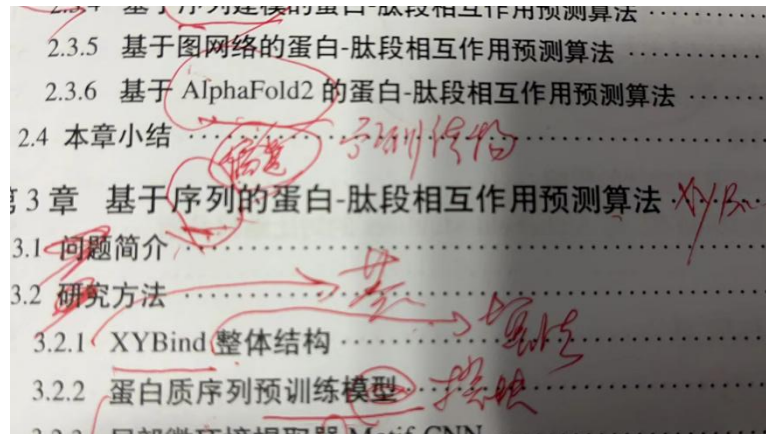 2.3.4 基于序列建模的蛋白-肽段相互作用预测算法
2.3.5 基于图网络的蛋白-肽段相互作用预测算法
2.3.6 基于 AlphaFold2 的蛋白-肽段相互作用预测算法
2.4 本章小结
第 3 章 基于序列的蛋白-肽段相互作用预测算法
3.1 问题简介
3.2 研究方法
3.2.1 XYBind 整体结构
3.2.2 蛋白质序列预训练模型
3.2.3 局部微环境提取器 Motif-CNN